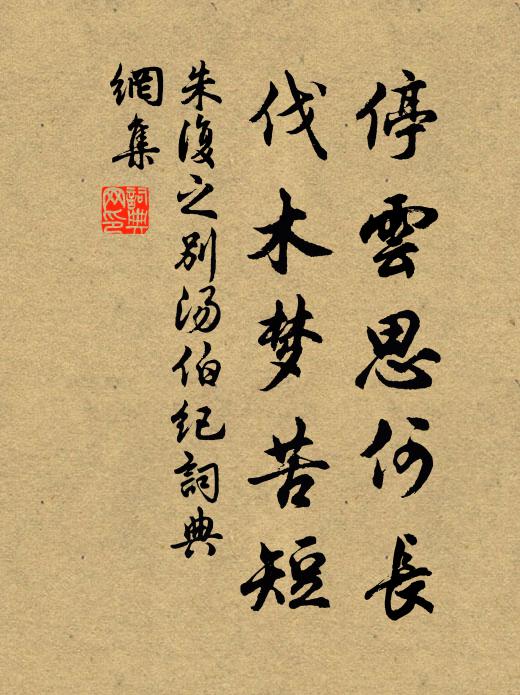 停雲思何長
伐木梦苦短
朱復之别汤伯纪詞典
網集
詞典
网印